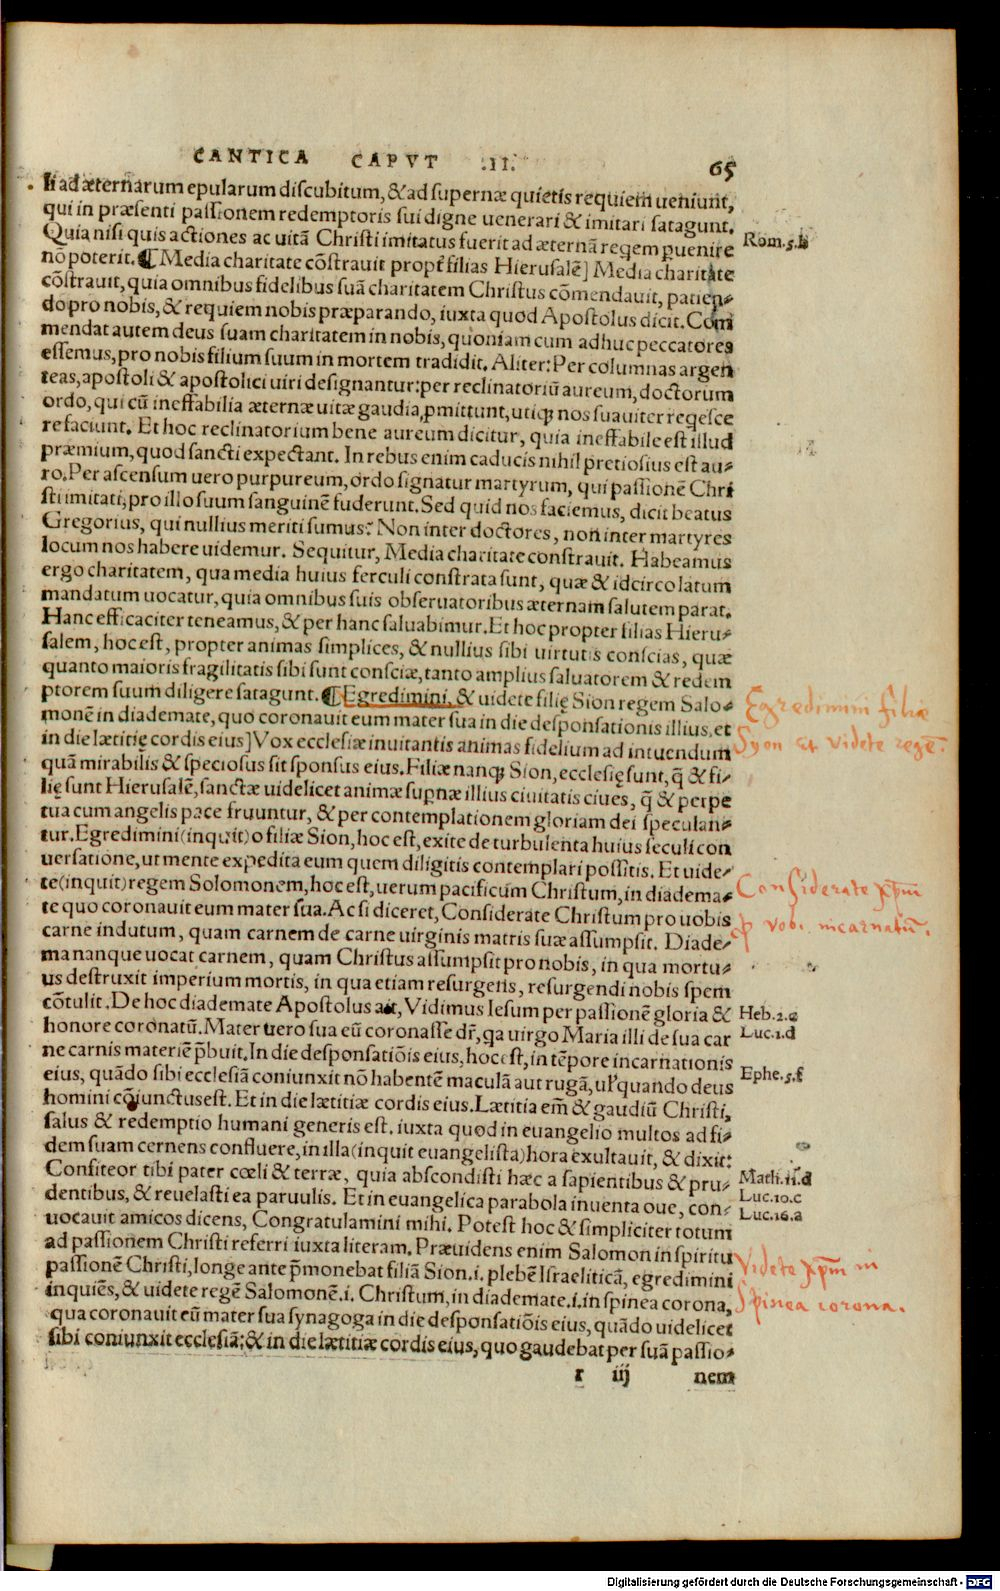 CANTICA CAPVT .II. 65
li ad æternarum epularum discubitum, & ad supernæ quietis requiem ueniunt,
qui in præsenti passionem redemptoris sui digne uenerari & imitari satagunt.
Quia nisi quis actiones ac uitā Christi imitatus fuerit ad æternā regem ꝑuenire
Rom.5.b
nō poterit. ¶ Media charitate cōstrauit propt̄ filias Hierusalē] Media charitate
cōstrauit, quia omnibus fidelibus suā charitatem Christus cōmendauit, patien-
do pro nobis, & requiem nobis præparando, iuxta quod Apostolus dicit. Com
mendat autem deus suam charitatem in nobis, quoniam cum adhuc peccatores
essemus, pro nobis filium suum in mortem tradidit. Aliter: Per columnas argen
teas, apostoli & apostolici uiri designantur: per reclinatoriū aureum, doctorum
ordo, qui cū ineffabilia æternæ uitæ gaudia ꝓmittunt, utiqꝫ nos suauiter reqesce
re faciunt. Et hoc reclinatorium bene aureum dicitur, quia ineffabile est illud
præmium, quod sancti expectant. In rebus enim caducis nihil pretiosius est au-
ro. Per ascensum uero purpureum, ordo signatur martyrum, qui passionē Chri
sti imitati, pro illo suum sanguinē fuderunt. Sed quid nos faciemus, dicit beatus
Gregorius, qui nullius meriti sumus? Non inter doctores, non inter martyres
locum nos habere uidemur. Sequitur, Media charitate constrauit. Habeamus
ergo charitatem, qua media huius ferculi constrata sunt, quæ & idcirco latum
mandatum uocatur, quia omnibus suis obseruatoribus æternam salutem parat.
Hanc efficaciter teneamus, & per hanc saluabimur. Et hoc propter filias Hieru-
salem, hoc est, propter animas simplices, & nullius sibi uirtutis conscias, quæ
quanto maioris fragilitatis sibi sunt consciæ, tanto amplius saluatorem & redem
ptorem suum diligere satagunt. ¶ Egredimini, & uidete filię Sion regem Salo-
Egredimini filiæ
monē in diademate, quo coronauit eum mater sua in die desponsationis illius, et
Syon et videte regē.
in die lætitię cordis eius] Vox ecclesiæ inuitantis animas fidelium ad intuendum
quā mirabilis & speciosus sit sponsus eius. Filiæ nanqꝫ Sion, ecclesię sunt, q̄ & fi-
lię sunt Hierusalē, sanctæ uidelicet animæ suꝑnæ illius ciuitatis ciues, q̄ & perpe
tua cum angelis pace fruuntur, & per contemplationem gloriam dei speculan-
tur. Egredimini (inquit) o filiæ Sion, hoc est, exite de turbulenta huius seculi con
uersatione, ut mente expedita eum quem diligitis contemplari possitis. Et uide-
te (inquit) regem Solomonem, hoc est, uerum pacificum Christum, in diadema-
Considerate xp̄m
te quo coronauit eum mater sua. Ac si diceret, Considerate Christum pro uobis
ꝓ vobi. incarnatū.
carne indutum, quam carnem de carne uirginis matris suæ assumpsit. Diade-
ma nanque uocat carnem, quam Christus assumpsit pro nobis, in qua mortu-
us destruxit imperium mortis, in qua etiam resurgens, resurgendi nobis spem
cōtulit. De hoc diademate Apostolus ait, Vidimus Iesum per passionē gloria &
Heb.2.c
honore coronatū. Mater uero sua eū coronasse dr̄, qa uirgo Maria illi de sua car
Luc.1.d
ne carnis materiē p̄buit. In die desponsatiōis eius, hoc est, in tēpore incarnationis
eius, quādo sibi ecclesiā coniunxit nō habentē maculā aut rugā, ul' quando deus
Ephe.5.f
homini cōiunctus est. Et in die lætitiæ cordis eius. Lætitia em̄ & gaudiū Christi,
salus & redemptio humani generis est. iuxta quod in euangelio multos ad fi-
dem suam cernens confluere, in illa (inquit euangelista) hora exultauit, & dixit:
Confiteor tibi pater cœli & terræ, quia abscondisti hæc a sapientibus & pru-
Math.11.d
dentibus, & reuelasti ea paruulis. Et in euangelica parabola inuenta oue, con-
Luc.10.c
uocauit amicos dicens, Congratulamini mihi. Potest hoc & simpliciter totum
Luc.16.a
ad passionem Christi referri iuxta literam. Præuidens enim Salomon in spiritu
passionē Christi, longe ante p̄monebat filiā Sion .i. plebē Israeliticā, egredimini
Videte xp̄m in
inquiēs, & uidete regē Salomonē .i. Christum, in diademate .i. in spinea corona,
spinea corona.
qua coronauit eū mater sua synagoga in die desponsatiōis eius, quādo uidelicet
sibi coniunxit ecclesiā: & in die lætitiæ cordis eius, quo gaudebat per suā passio-
r iij nem
Digitalisierung gefördert durch die Deutsche Forschungsgemeinschaft - DFG